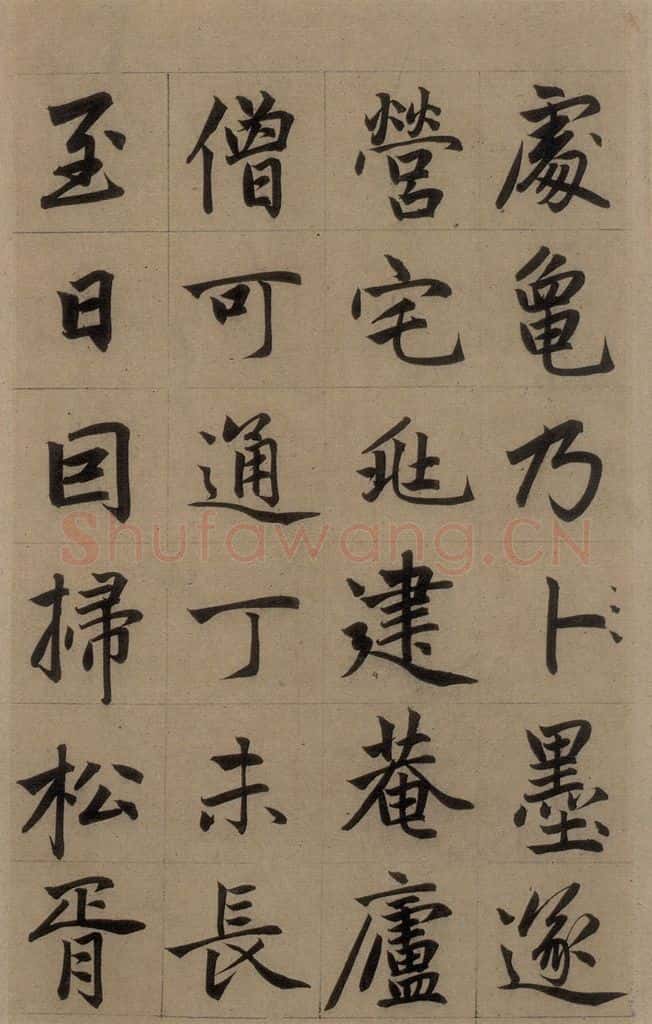 處龜乃卜墨遂
營宅兆建菴廬
僧可通丁未長
至日囙掃松胥
Shufawang.CN